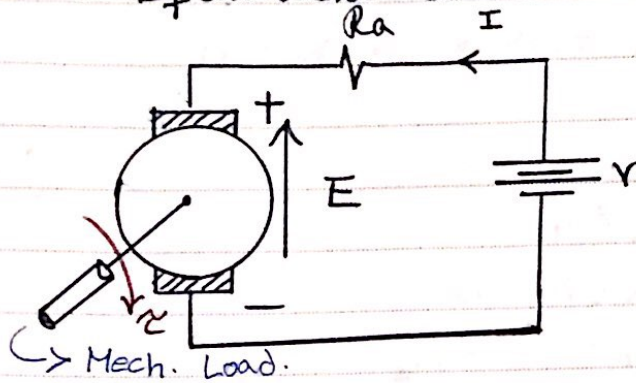 Ra
I
+
E
V
−
τ
Mech. Load.